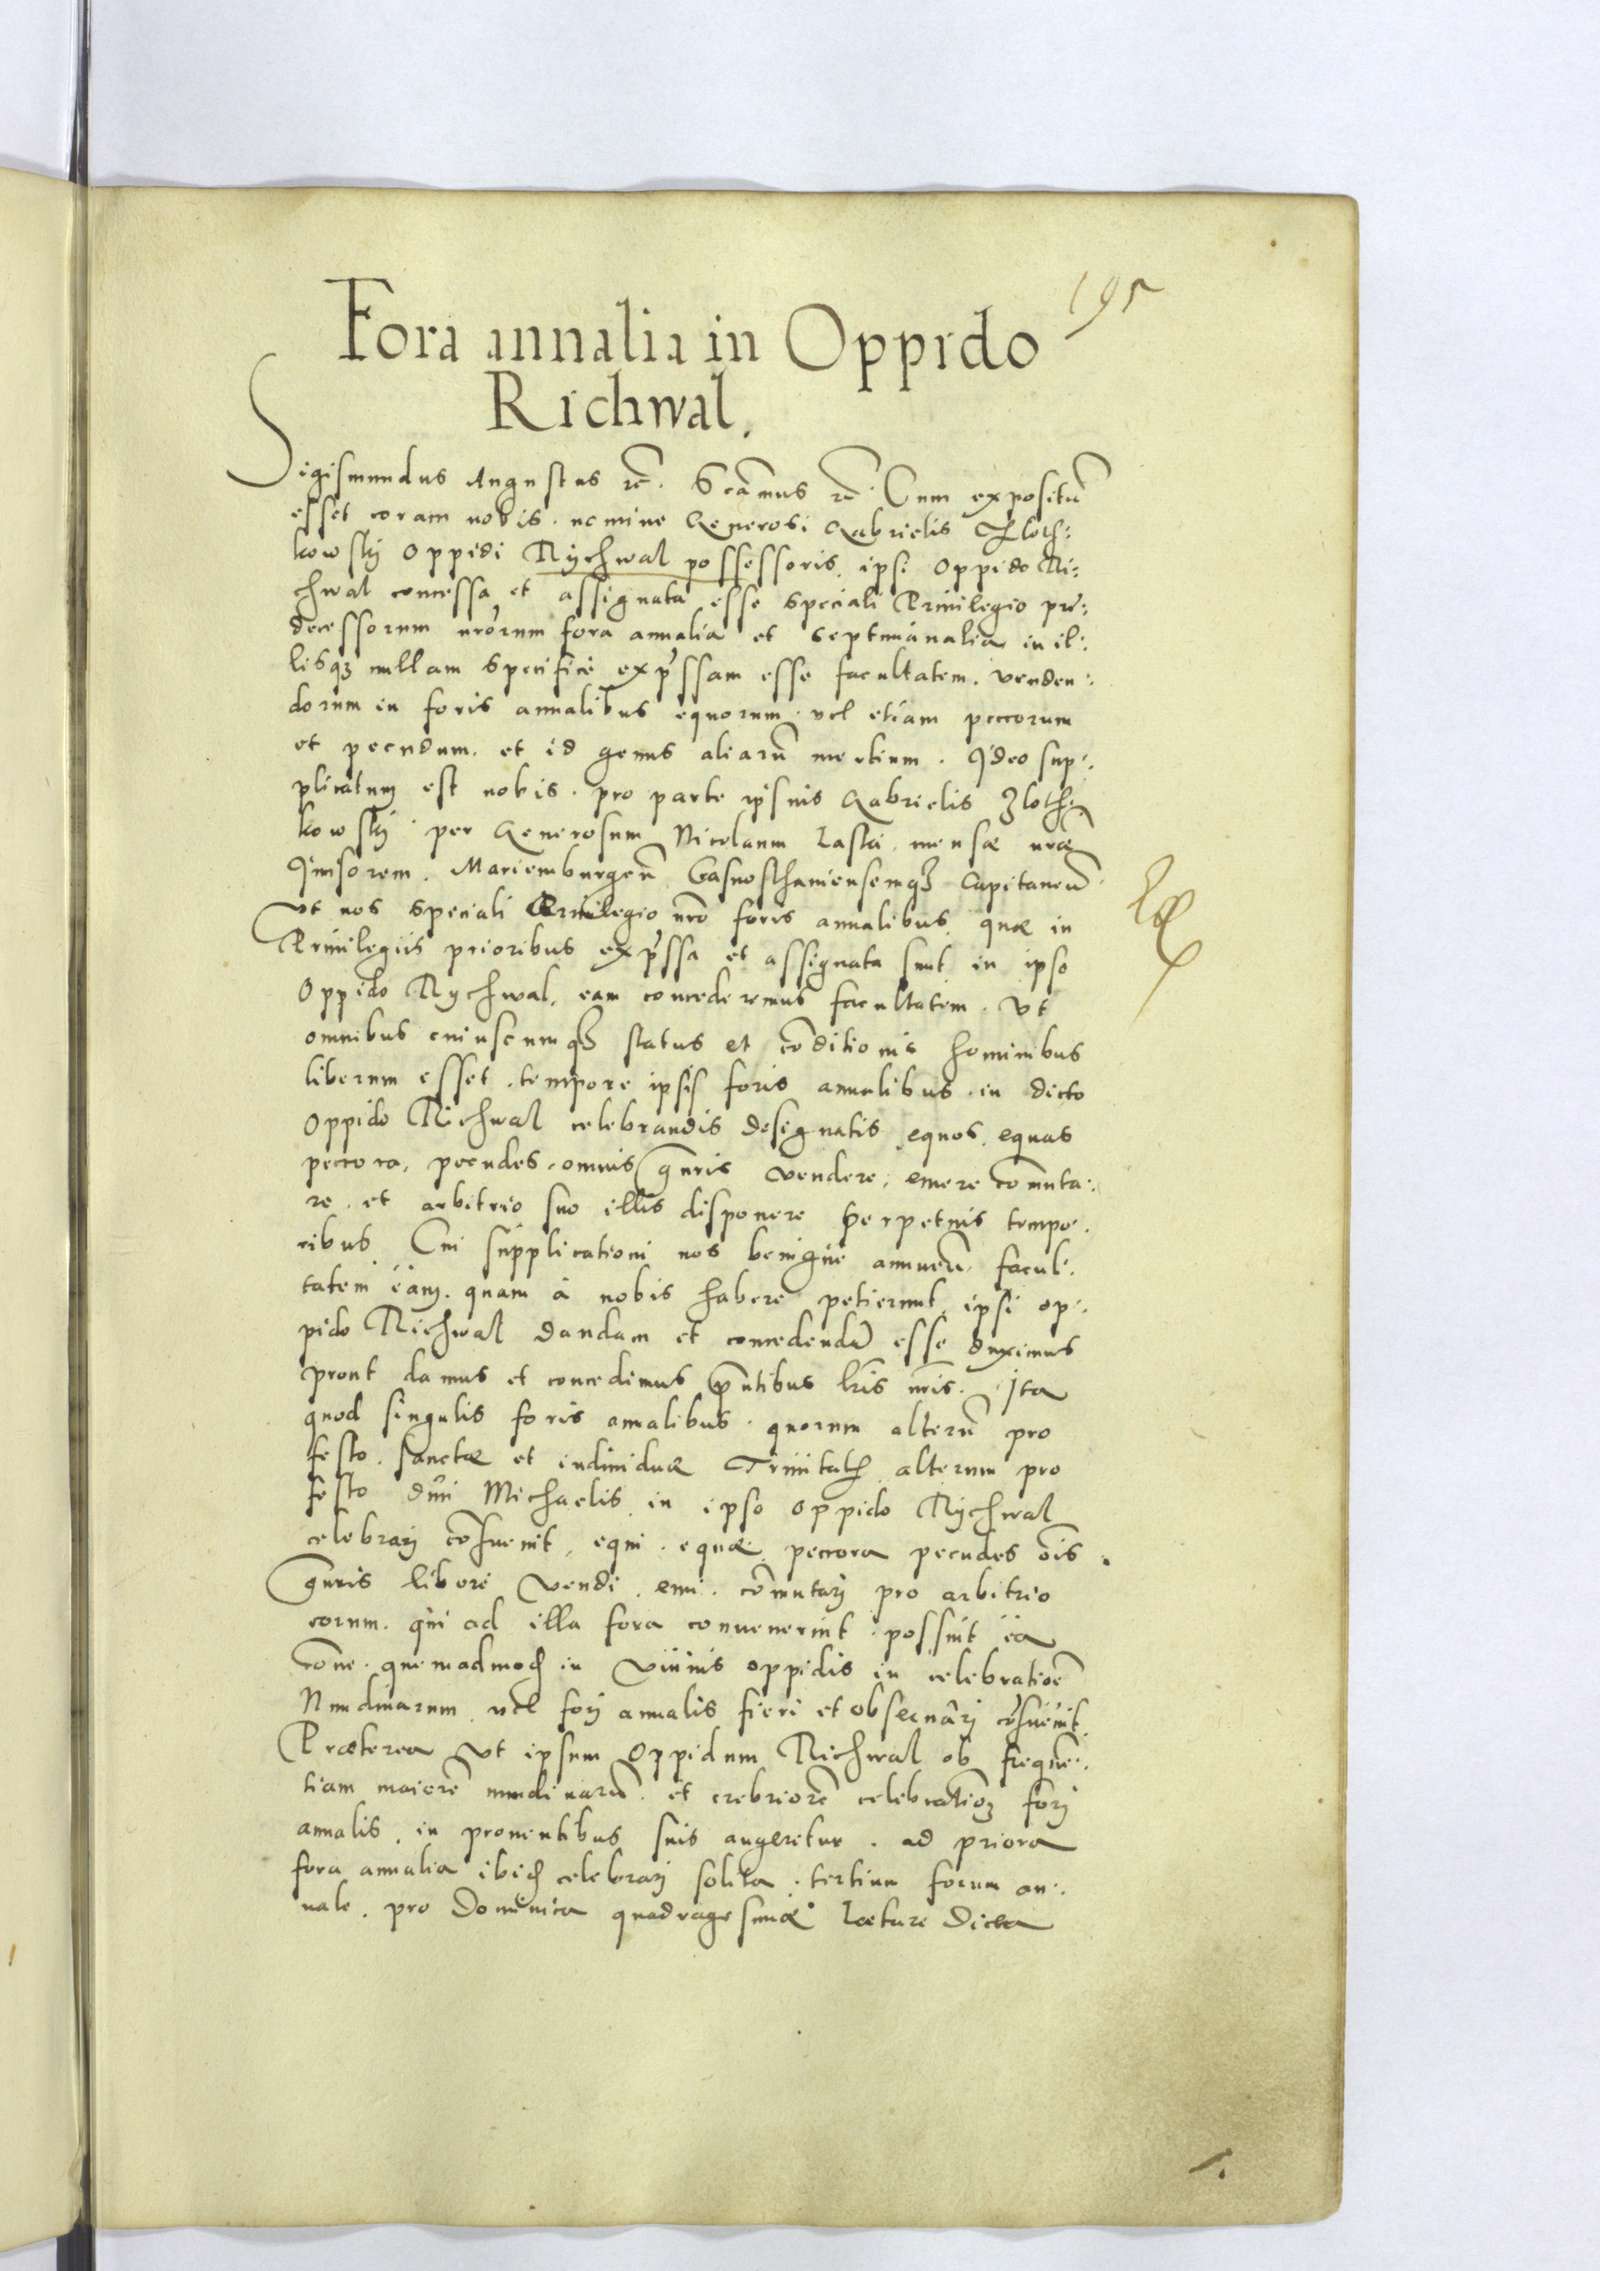 195
Fora annalia in Oppido
Richwal.
Sigismundus Augustus rc̄. Scāmus rc̄. Cum expositū
esset coram nobis. nomine Generosi Gabrielis Zloth:
kowskij Oppidi Rychwal possessoris. ipsi Oppido Ri:
chwal concessa et assignata esse speciali Priuilegio prę:
decessorum nr̄orum fora annalia et septimanalia in il:
lisqȝ nullam specificè exp̄ssam esse facultatem. venden:
dorum in foris annalibus equorum. vel etiam peccorum
et pecudum. et id genus aliarū mertium. Ideo sup:
plicatum est nobis. pro parte ipsius Gabrielis Zloth:
kowskij per Generosum Nicolaum Laski mensæ nr̄æ
Incisorem. Mariemburgeñ Gasnosthaniensemqȝ Capitaneū
vt nos speciali Priuilegio nr̄o foris annalibus. quæ in
Priuilegiis prioribus exp̄ssa et assignata sunt in ipso
Oppido Rychwal, eam concederemus facultatem. vt
omnibus cuiuscumqȝ status et cōditionis hominibus
liberum esset. tempore ipsis foris annalibus. in dicto
Oppido Richwal celebrandis designatis equos, equas
peccora, pecudes. omnis gn̄ris vendere, emere com̄uta:
re. et arbitrio suo illis disponere perpetuis tempo:
ribus Cui supplicationi nos benignè annueñ. facul:
tatem eam. quam à nobis habere petierunt. ipsi op:
pido Richwal dandam et concedendā esse duximus
prout damus et concedimus p̄ntibus lr̄is nr̄is. Ita
quod singulis foris annalibus. quorum alterū pro
festo. sanctæ et indiuiduæ Trinitatis alterum pro
festo diui Michaelis in ipso oppido Rychwal
celebrarij cōsueuit, equi. equæ. peccora pecudes oīs
gn̄ris liberè vendi. emi. com̄utarij pro arbitrio
eorum. qui ad illa fora conuenerint possint ea
rōne. quemadmodum in vicinis oppidis in celebratioē
Nundinarum vel forij annalis fieri et obseruarij cōsueuit
Præterea vt ipsum Oppidum Richwal ob frequē:
tiam maiorē nundinarū. et crebriorē celebrationē forij
annalis. in prouentibus suis augeretur. ad priora
fora annalia ibidem celebrarij solita. tertium forum an:
nale. pro Dominica quadragesimæ Lætare dicta